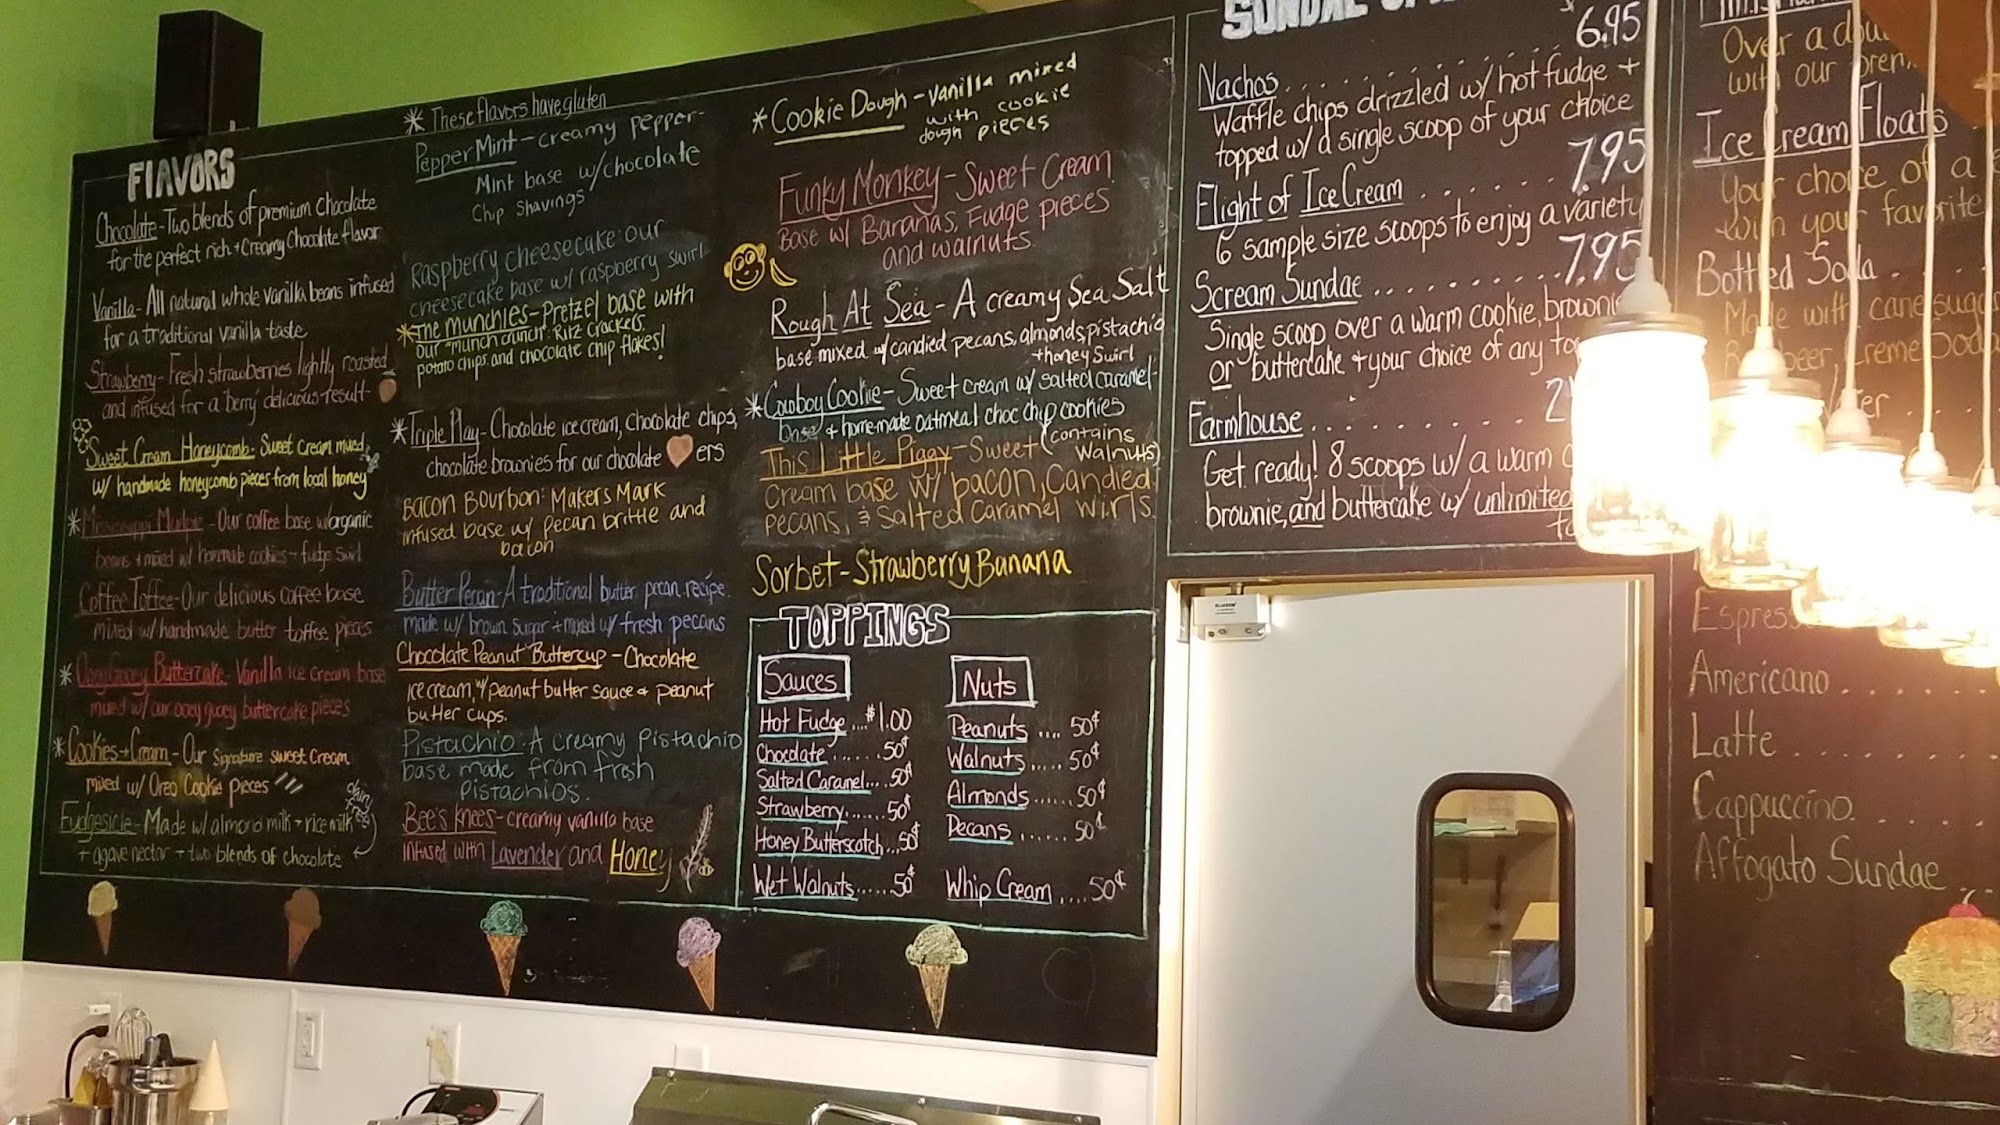 FLAVORS
Chocolate - Two blends of premium chocolate
for the perfect rich + creamy chocolate flavor
Vanilla - All natural whole vanilla beans infused
for a traditional vanilla taste
Strawberry - Fresh strawberries lightly roasted
and infused for a "berry" delicious result
Sweet Cream Honeycomb - Sweet cream mixed
w/ handmade honeycomb pieces from local honey
* Mississippi Mudpie - Our coffee base w/organic
beans + mixed w/ homemade cookies + fudge swirl
Coffee Toffee - Our delicious coffee base
mixed w/ handmade butter toffee pieces
* Ooey Gooey Buttercake - Vanilla ice cream base
mixed w/ our ooey gooey buttercake pieces
* Cookies + Cream - Our signature sweet cream
mixed w/ Oreo Cookie pieces
Fudgesicle - Made w/ almond milk + rice milk
+ agave nectar + two blends of chocolate
dairy free
* These flavors have gluten
PepperMint - creamy pepper-
Mint base w/chocolate
Chip shavings
Raspberry cheesecake: our
cheesecake base w/ raspberry swirl
* The Munchies - Pretzel base with
our "munch crunch": Ritz crackers,
potato chips and chocolate chip flakes!
* Triple Play - Chocolate ice cream, chocolate chips,
chocolate brownies for our chocolate ers
Bacon Bourbon: Makers Mark
infused base w/ pecan brittle and
bacon
Butter Pecan - A traditional butter pecan recipe
made w/ brown sugar + mixed w/ fresh pecans
Chocolate Peanut Buttercup - Chocolate
ice cream, w/ peanut butter sauce + peanut
butter cups.
Pistachio: A creamy pistachio
base made from fresh
pistachios.
Bee's knees - creamy vanilla base
infused with Lavender and Honey
* Cookie Dough - vanilla mixed
with cookie
dough pieces
Funky Monkey - Sweet Cream
Base w/ Bananas, Fudge pieces
and walnuts
Rough At Sea - A creamy Sea Salt
base mixed w/ candied pecans, almonds, pistachio
+ honey swirl
* Cowboy Cookie - Sweet cream w/ salted caramel
base + homemade oatmeal choc chip cookies
(contains walnuts)
This Little Piggy - Sweet
cream base w/ bacon, candied
pecans, & salted caramel wirls.
Sorbet - Strawberry Banana
TOPPINGS
Sauces
Hot Fudge .... $1.00
Chocolate ...... 50¢
Salted Caramel.... 50¢
Strawberry...... 50¢
Honey Butterscotch... 50¢
Wet Walnuts...... 50¢
Nuts
Peanuts .... 50¢
Walnuts..... 50¢
Almonds...... 50¢
Pecans ...... 50¢
Whip Cream .... 50¢
SUNDAE
6.95
Nachos
Waffle chips drizzled w/ hot fudge +
topped w/ a single scoop of your choice
7.95
Flight of Ice Cream
6 sample size scoops to enjoy a variety
Scream Sundae .......... 7.95
Single scoop over a warm cookie, brownie
or buttercake + your choice of any
Farmhouse
Get ready! 8 scoops w/ a warm
brownie, and buttercake w/ unlimited
Over a
with our
Ice Cream Floats
Your choice of a
with your favorite
Bottled Soda
Made with cane sugar
Creme Soda
Espresso
Americano
Latte
Cappuccino
Affogato Sundae